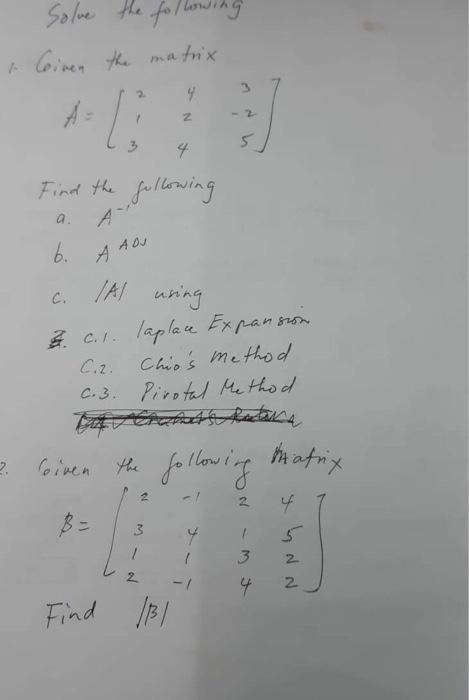 Solve the following
1. Given the matrix
A = [ 2 4 3
1 2 -2
3 4 5 ]
Find the following
a. A⁻¹
b. A ADJ
c. |A| using
c.1. laplace Expansion
C.2. Chio's method
C.3. Pivotal Method
2. Given the following Matrix
B = [ 2 -1 2 4
3 4 1 5
1 1 3 2
2 -1 4 2 ]
Find |B|